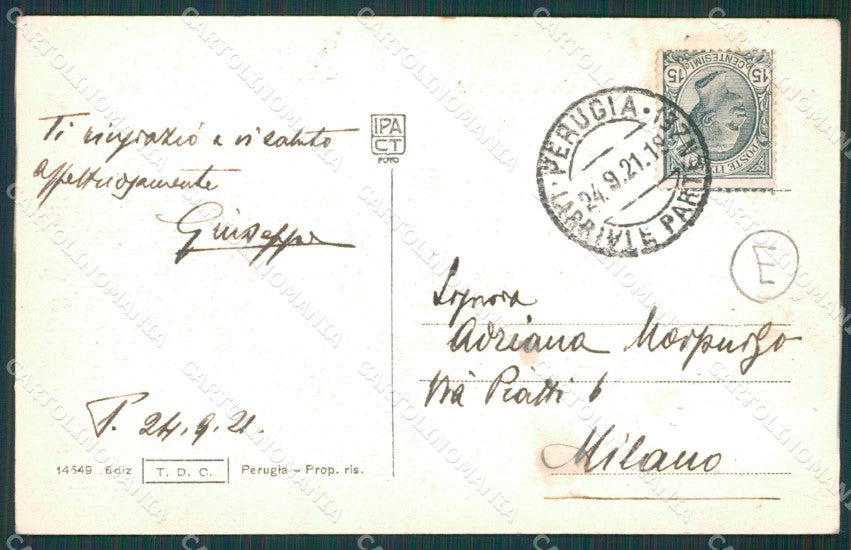 Ti ringrazio e vi saluto
affettuosamente
Giuseppe
P. 24.9.21.
14649 Ediz T. D. C. Perugia – Prop. ris.
IPA
CT
FOTO
PERUGIA
24.9.21.19
(ARRIVI E PARTENZE)
15 CENTESIMI 15
POSTE
Signora
Adriana Morpurgo
Via Piatti 6
Milano
CARTOLINOMANIA